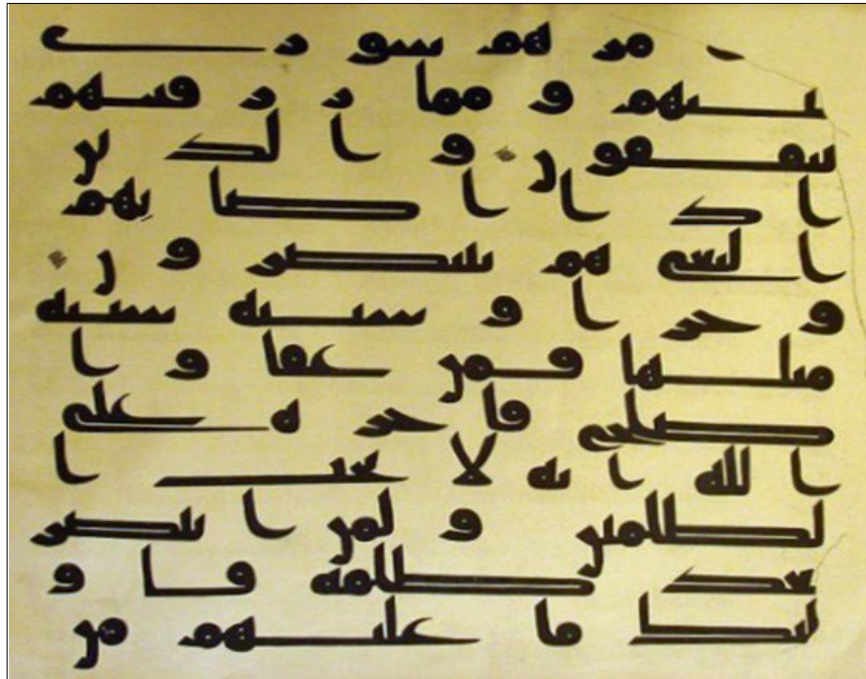 مرهم شورى
بينهم ومما رزقنهم
ينفقون والذين
اذا اصابهم
البغي هم ينتصرون
وجزاو سيئة سيئة
مثلها فمن عفا وا
صلح فاجره على
الله انه لا يحب ا
لظلمين ولمن انتصر
بعد ظلمه فاو
لئك ما عليهم من